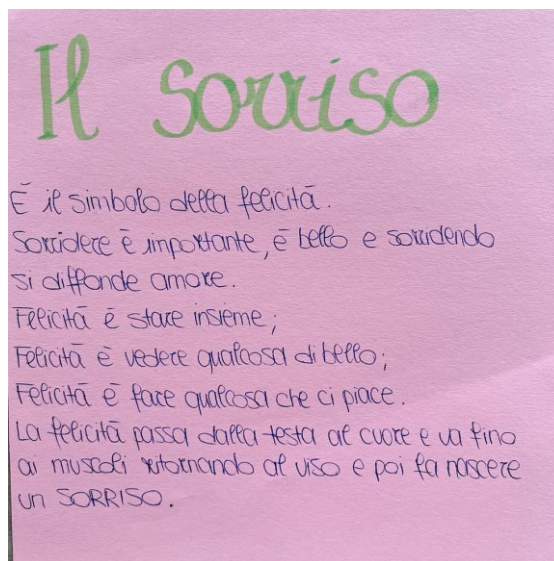 Il Sorriso
È il simbolo della felicità.
Sorridere è importante, è bello e sorridendo
si diffonde amore.
Felicità è stare insieme;
Felicità è vedere qualcosa di bello;
Felicità è fare qualcosa che ci piace.
La felicità passa dalla testa al cuore e va fino
ai muscoli ritornando al viso e poi fa nascere
un SORRISO.